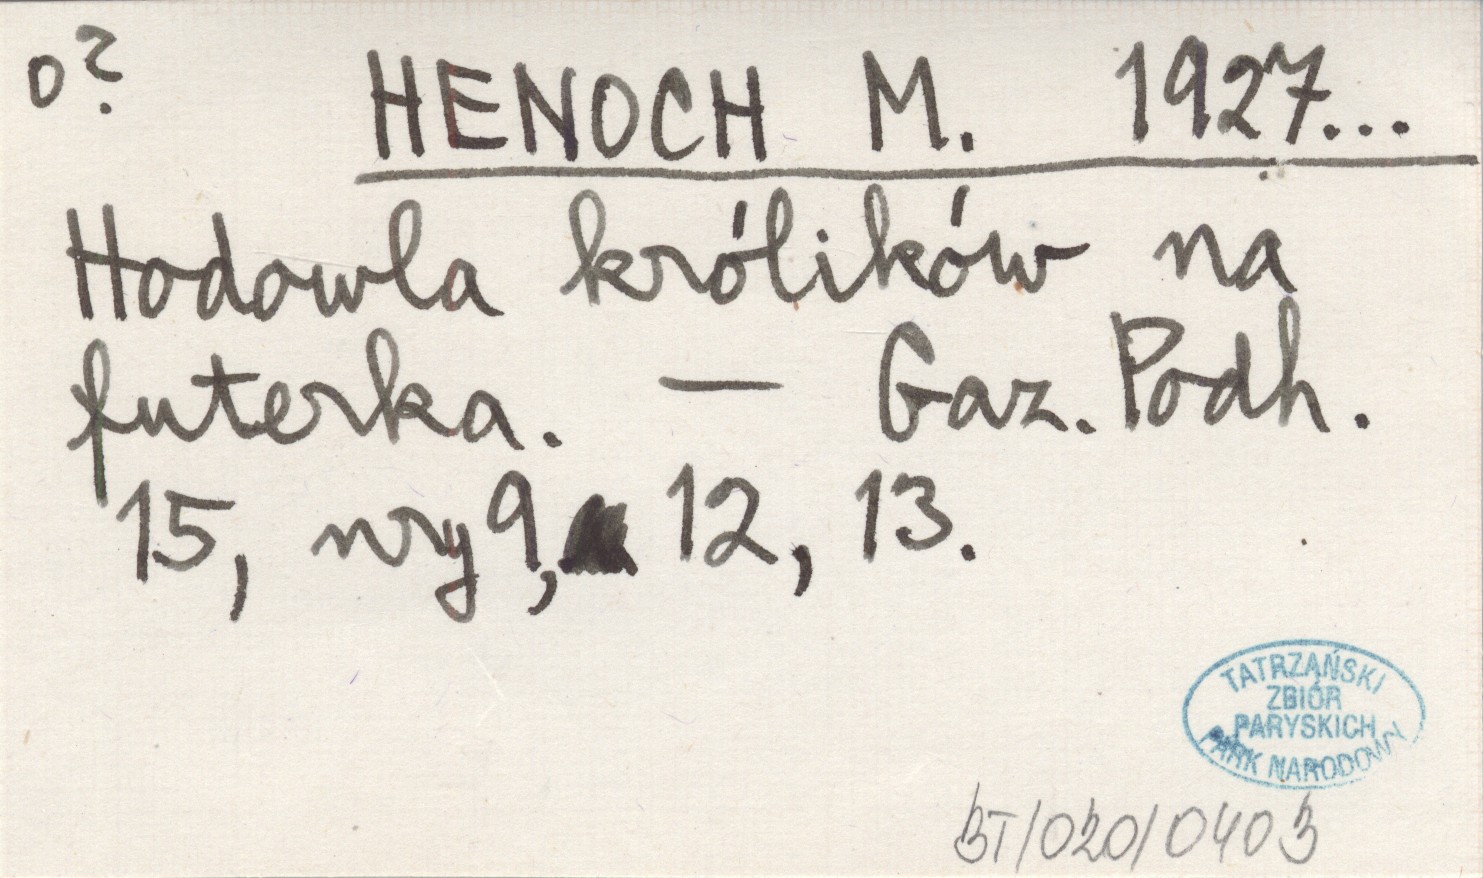 o?
HENOCH M. 1927...
Hodowla królików na
futerka. — Gaz. Podh.
15, nry 9, 12, 13.
TATRZAŃSKI
ZBIÓR
PARYSKICH
PARK NARODOWY
BT/020/0403